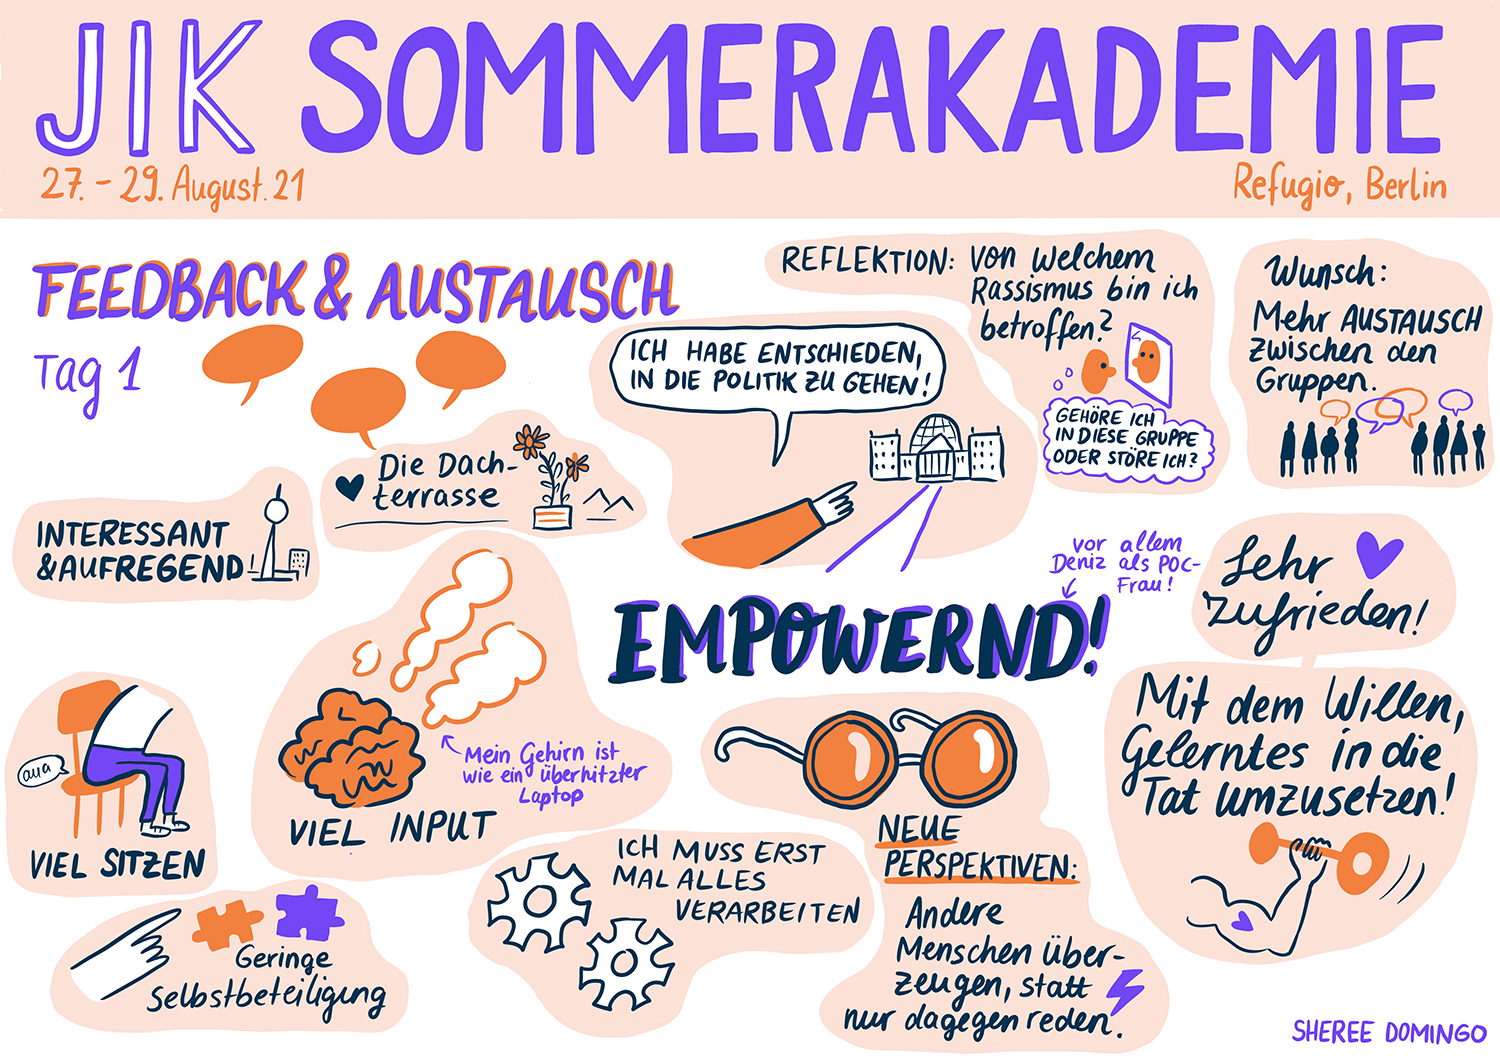 JIK SOMMERAKADEMIE
27. - 29. August. 21
Refugio, Berlin
FEEDBACK & AUSTAUSCH
Tag 1
INTERESSANT
& AUFREGEND
Die Dach-
terrasse
ICH HABE ENTSCHIEDEN,
IN DIE POLITIK ZU GEHEN!
REFLEKTION: Von welchem
Rassismus bin ich
betroffen?
GEHÖRE ICH
IN DIESE GRUPPE
ODER STÖRE ICH?
Wunsch:
Mehr AUSTAUSCH
zwischen den
Gruppen.
vor allem
Deniz als POC-
Frau!
EMPOWERND!
Sehr
zufrieden!
Mit dem Willen,
Gelerntes in die
Tat umzusetzen!
aua
VIEL SITZEN
Mein Gehirn ist
wie ein überhitzter
Laptop
VIEL INPUT
Geringe
Selbstbeteiligung
ICH MUSS ERST
MAL ALLES
VERARBEITEN
NEUE
PERSPEKTIVEN:
Andere
Menschen über-
zeugen, statt
nur dagegen reden.
SHEREE DOMINGO